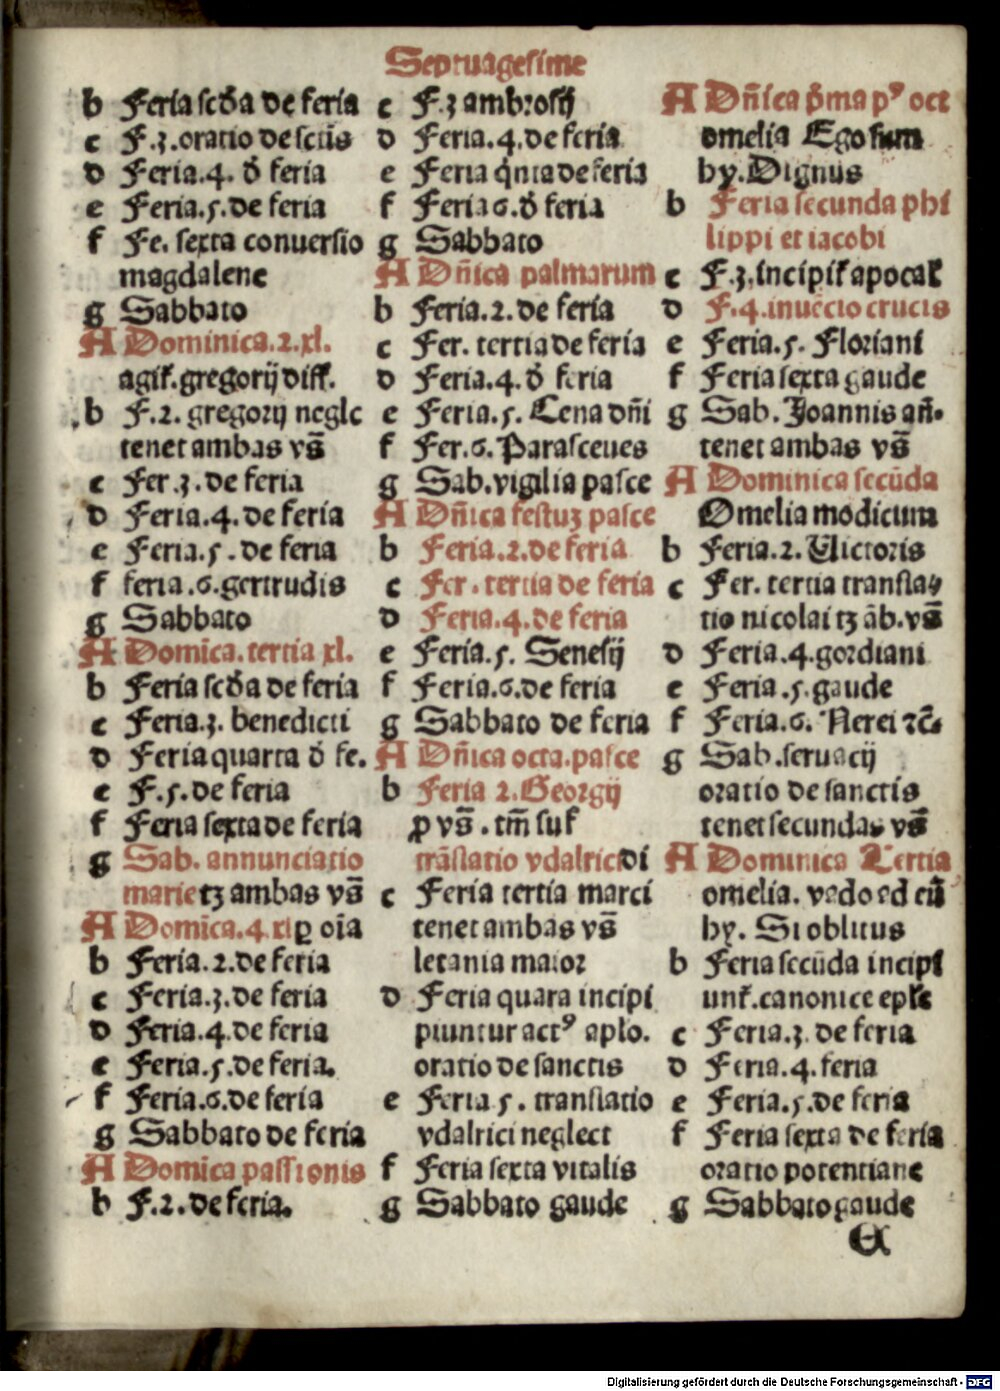 Septuagesime
b Feria scd̃a de feria
c F.3.oratio de sctīs
d Feria.4. d̓ feria
e Feria.5.de feria
f Fe. sexta conuersio
magdalene
g Sabbato
A Dominica.2.xl.
agit̃.gregorij diff̃.
b F.2. gregorij neglc
tenet ambas vs̄
c Fer.3.de feria
d Feria.4.de feria
e Feria.5.de feria
f feria.6.gertrudis
g Sabbato
A Domīca.tertia xl.
b Feria scd̃a de feria
c Feria.3. benedicti
d Feria quarta d̓ fe.
e F.5.de feria
f Feria sexta de feria
g Sab. annunciatio
marie tꝫ ambas vs̄
A Domīca.4.xl ꝑ oīa
b Feria.2.de feria
c Feria.3.de feria
d Feria.4.de feria
e Feria.5.de feria.
f Feria.6.de feria
g Sabbato de feria
A Domīca passionis
b F.2.de feria.
c F.3 ambrosij
d Feria.4.de feria
e Feria q̇nta de feria
f Feria 6.d̓ feria
g Sabbato
A Dñica palmarum
b Feria.2.de feria
c Fer. tertia de feria
d Feria.4.d̓ feria
e Feria.5. Cena dñi
f Fer.6.Parasceues
g Sab.vigilia pasce
A Dñica festuꝫ pasce
b Feria.2.de feria
c Fer. tertia de feria
d Feria.4.de feria
e Feria.5. Senesij
f Feria.6.de feria
g Sabbato de feria
A Dñica octa.pasce
b Feria 2.Georgij
ꝓ vs̄.tm̄ suf̃
trāslatio vdalrici di
c Feria tertia marci
tenet ambas vs̄
letania maior
d Feria quara incipi
piuntur actꝰ aplo.
oratio de sanctis
e Feria 5. translatio
vdalrici neglect
f Feria sexta vitalis
g Sabbato gaude
A Dñica p̄ma pꝰ oct
omelia Ego sum
hy.Dignus
b Feria secunda phi
lippi et iacobi
c F.3.incipit̃ apocal̃
d F.4.inuēcio crucis
e Feria.5. Floriani
f Feria sexta gaude
g Sab.Joannis añ.
tenet ambas vs̄
A Dominica secūda
Omelia modicum
b Feria.2. Uictoris
c Fer. tertia transla⸗
tio nicolai tꝫ āb.vs̄
d Feria.4.gordiani
e Feria.5.gaude
f Feria.6. Nerei ⁊c̄.
g Sab.seruacij
oratio de sanctis
tenet secundas vs̄
A Dominica Tertia
omelia. vado ad eū
hy. Si oblitus
b Feria secūda incipi
unt̃.canonice epl̃e
c Feria.3.de feria
d Feria.4.feria
e Feria.5.de feria
f Feria sexta de feria
oratio potentiane
g Sabbato gaude
Digitalisierung gefördert durch die Deutsche Forschungsgemeinschaft - DFG